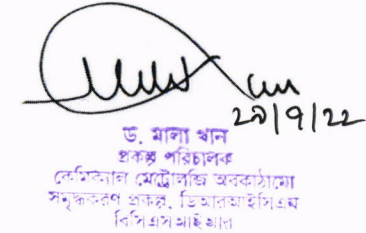 ২৯/৭/২২
ড. মালা খান
প্রকল্প পরিচালক
কেমিক্যাল মেট্রোলজি অবকাঠামো
সমৃদ্ধকরণ প্রকল্প, ডিআরআইসিএম
বিসিএসআইআর